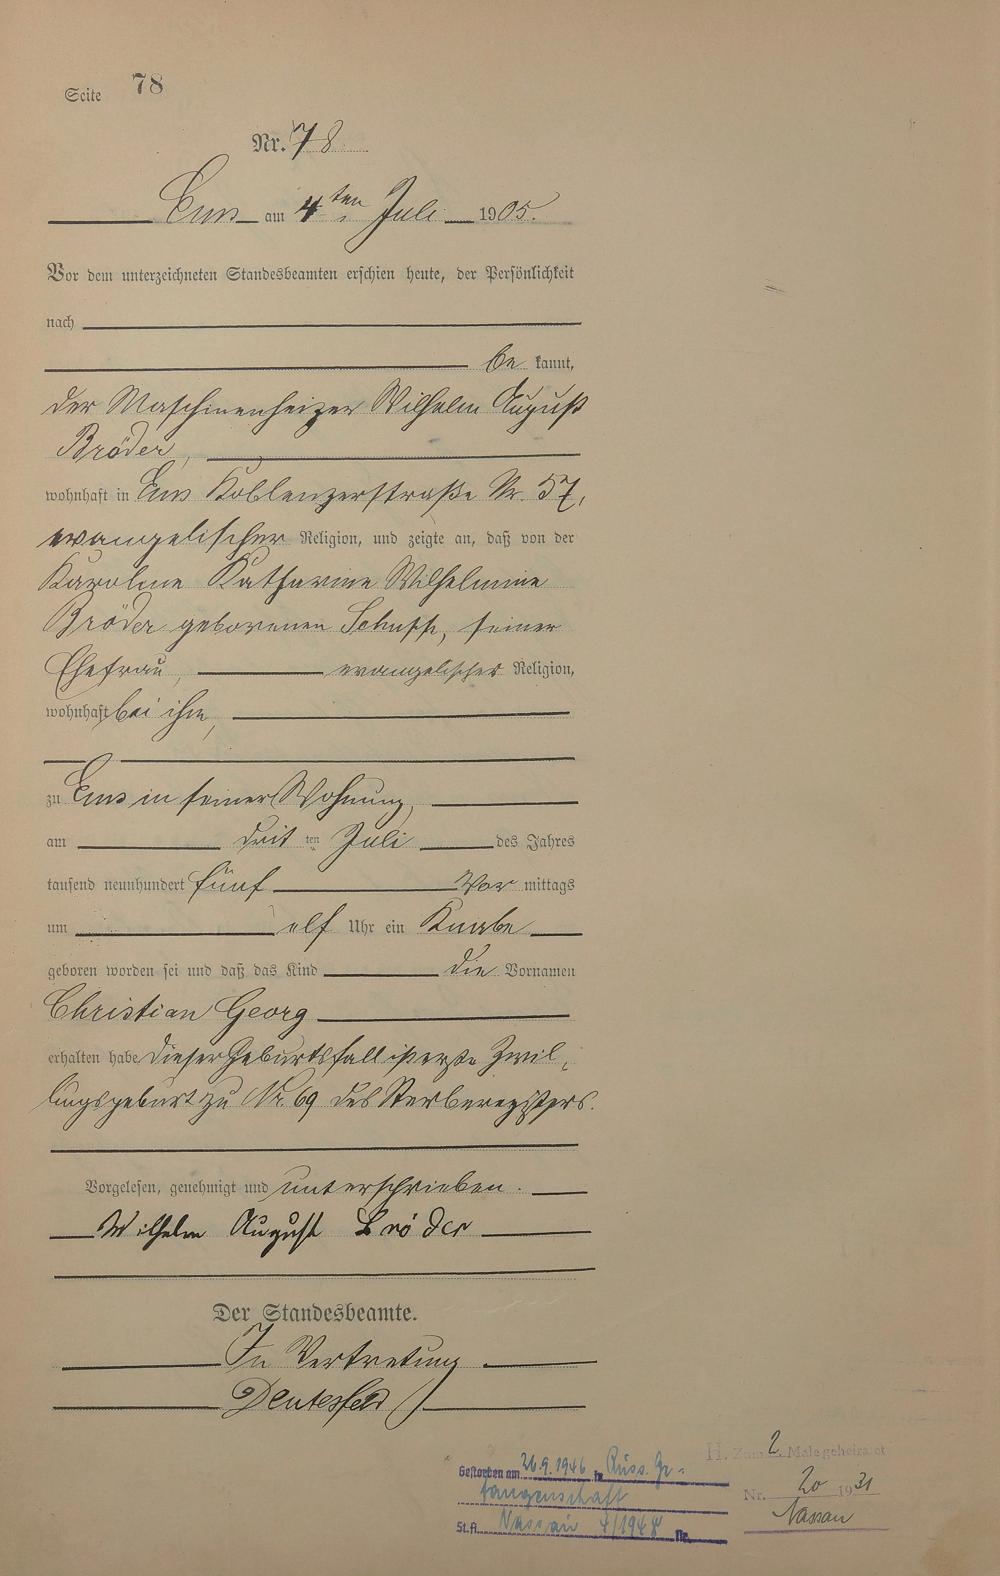 Seite 78
Nr. 78
Ems am 4ten Juli 1905.
Vor dem unterzeichneten Standesbeamten erschien heute, der Persönlichkeit
nach
be kannt,
der Maschinenheizer Wilhelm August
Bröder,
wohnhaft in Ems Koblenzerstraße Nr. 57,
evangelischer Religion, und zeigte an, daß von der
Karoline Katharine Wilhelmine
Bröder geborenen Schupp, seiner
Ehefrau, evangelischer Religion,
wohnhaft bei ihm,
zu Ems in seiner Wohnung,
am drit ten Juli des Jahres
tausend neunhundert fünf Vor mittags
um elf Uhr ein Knabe
geboren worden sei und daß das Kind die Vornamen
Christian Georg
erhalten habe. Dieser Geburtsfall ist erste Zwil-
lingsgeburt zu Nr. 69 des Sterberegisters.
Vorgelesen, genehmigt und unterschrieben.
Wilhelm August Bröder
Der Standesbeamte.
In Vertretung
H. Zum 2 Male geheiratet
Gestorben am 26.9.1946 in Russ. Ge-
fangenschaft
Nr. 20 1931
Nassau
St.A. Nassau 4/1948 Nr.